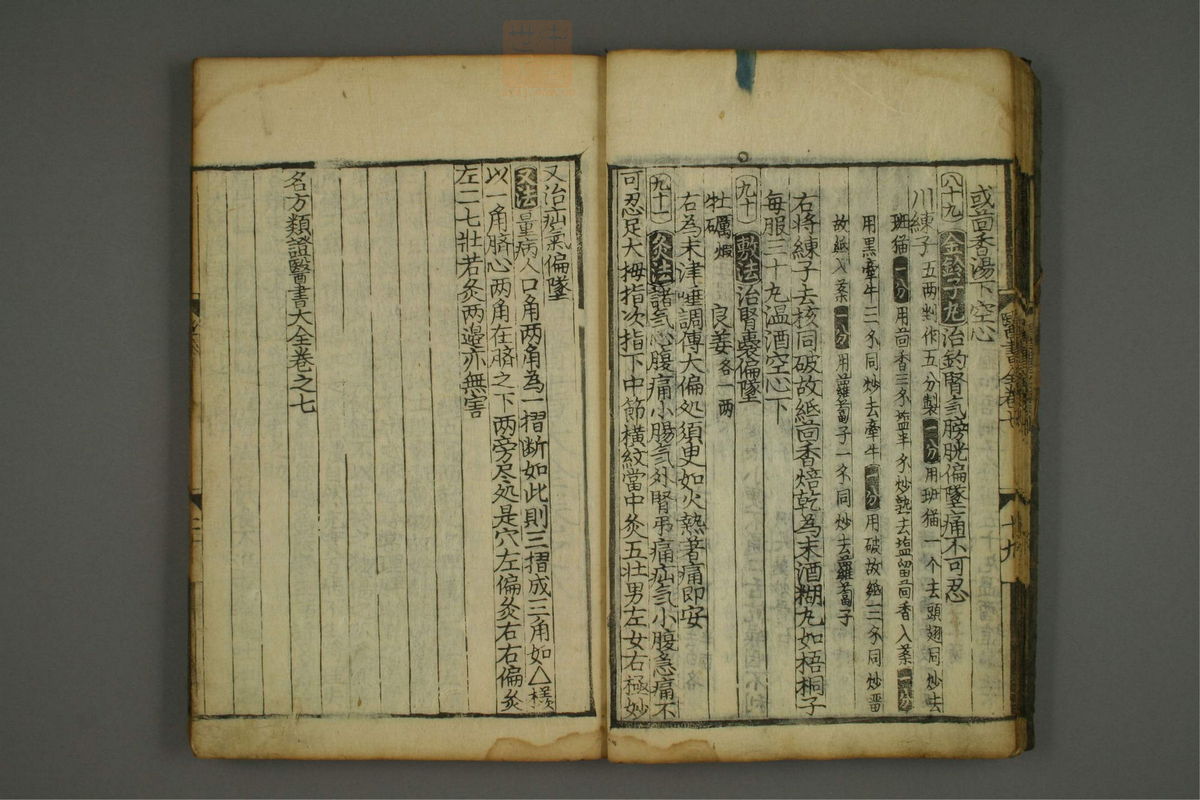 或茴香湯下空心
八十九 金鈴子丸 治釣腎気膀胱偏墜痛不可忍
川練子 五两剉作五分製 一分用班猫一个去頭翅同炒去
班猫 一分 用茴香三木塩半木炒熟去塩留茴香入薬 一分
用黒牽牛三木同炒去牽牛 一分 用破故紙三木同炒畱
故紙入薬 一分 用蘿蔔子一木同炒去蘿蔔子
右將練子去核同破故紙茴香焙乾為末酒糊丸如梧桐子
每服三十丸温酒空心下
九十 敷法 治腎嚢偏墜
牡礪 煆 良姜 各一两
右為末津唾調傅大偏処須臾如火熱著痛即安
九十一 灸法 諸気心腹痛小腸気外腎弔痛疝気小腹急痛不
可忍足大拇指次指下中節橫紋當中灸五壮男左女右極妙
又治疝氣偏墜
又法 量病人口角两角為一摺断如此則三摺成三角如△樣
以一角臍心两角在臍之下两旁尽処是穴左偏灸右右偏灸
左二七壮若灸两邉亦無害
名方類證醫書大全卷之七